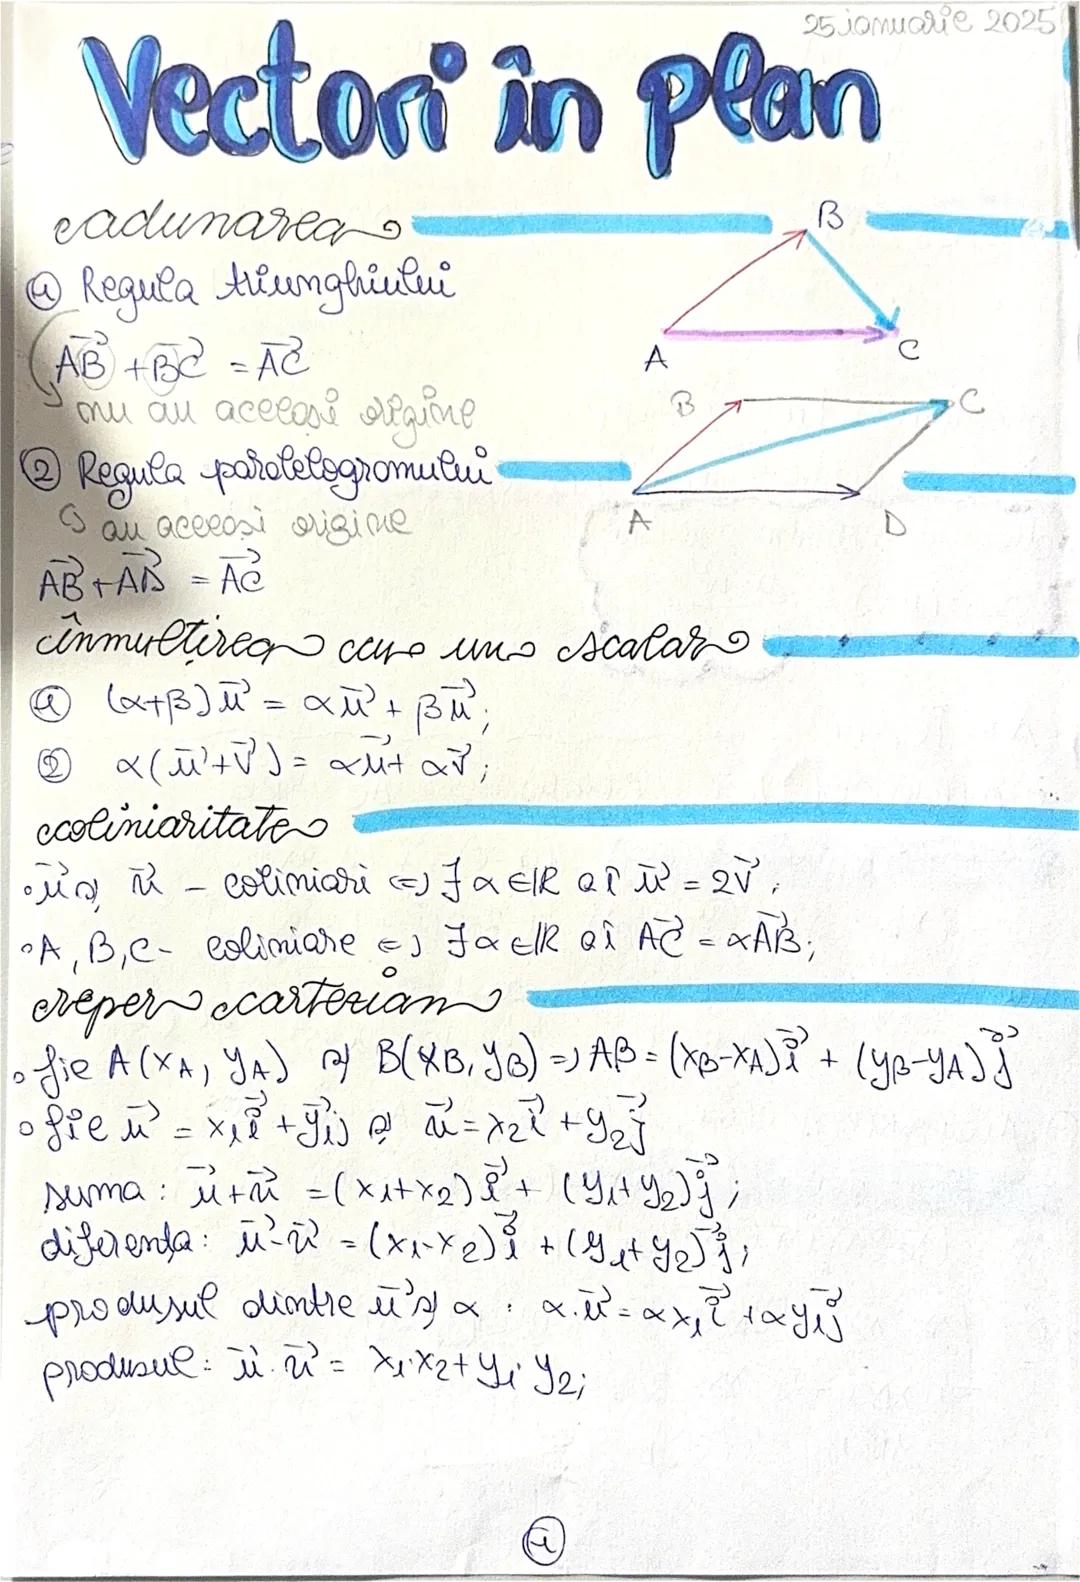 25 ianuarie 2025
Vectori în plan
adunarea
① Regula triunghiului
B
A
C
AB⃗ + BC⃗ = AC⃗
nu au aceeași origine
B
C
② Regula paralelogramului
au aceeași origine
A
D
AB⃗ + AD⃗ = AC⃗
înmulțirea cu un scalar
① (α+β)u⃗ = αu⃗ + βu⃗;
② α(u⃗+v⃗) = αu⃗ + αv⃗;
coliniaritate
• u⃗ și u⃗ - coliniari ⇔ ∃ α∈ℝ aî u⃗ = 2v⃗;
• A, B, C - coliniare ⇔ ∃ α∈ℝ aî AC⃗ = αAB⃗;
reper cartezian
• fie A(xA, yA) și B(xB, yB) ⇒ AB = (xB-xA)i⃗ + (yB-yA)j⃗
• fie u⃗ = x₁i⃗ + y₁j⃗ și u⃗ = x₂i⃗ + y₂j⃗
suma: u⃗+u⃗ = (x₁+x₂)i⃗ + (y₁+y₂)j⃗;
diferența: u⃗-u⃗ = (x₁-x₂)i⃗ + (y₁+y₂)j⃗;
produsul dintre u⃗ și α: α·u⃗ = αx₁i⃗ + αy₁j⃗
produsul: u⃗·u⃗ = x₁·x₂ + y₁·y₂;
①